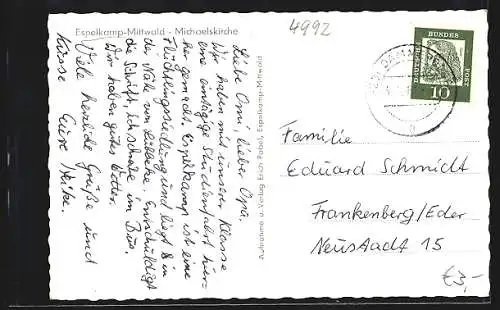 Espelkamp-Mittwald - Michaelskirche
4992
DEUTSCHE BUNDES POST
10
Liebe Omi, lieber Opa.
Wir haben mit unserer Klasse
eine eintägige Studienfahrt hier-
her gemacht. Espelkamp ist eine
Flüchtlingssiedlung und liegt in
der Nähe von Lübbecke. Entschuldigt
die Schrift, ich schreibe im Bus.
Wir haben gutes Wetter.
Viele herzliche Grüße und
Küsse Eure Heike.
Aufnahme u. Verlag Erich Espelkamp-Mittwald
Familie
Eduard Schmidt
Frankenberg/Eder
Neustadt 15
€3,-